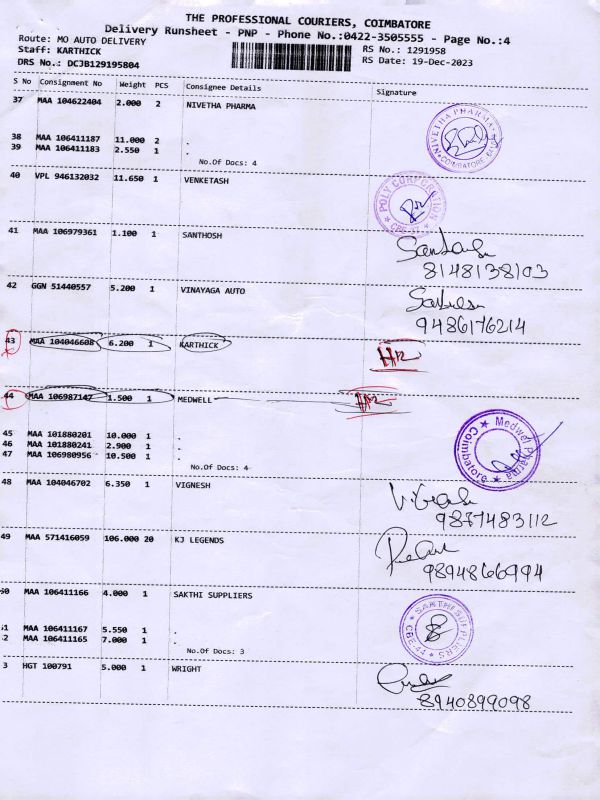 THE PROFESSIONAL COURIERS, COIMBATORE
Delivery Runsheet - PNP - Phone No.:0422-3505555 - Page No.:4
Route: MO AUTO DELIVERY RS No.: 1291958
Staff: KARTHICK RS Date: 19-Dec-2023
DRS No.: DCJB129195804
S No Consignment No Weight PCS Consignee Details Signature
37 MAA 104622404 2.000 2 NIVETHA PHARMA
NIVETHA PHARMA COIMBATORE
38 MAA 106411187 11.000 2 .
39 MAA 106411183 2.550 1 .
No.Of Docs: 4
40 VPL 946132032 11.650 1 VENKETASH
POLY CORPORATION
41 MAA 106979361 1.100 1 SANTHOSH
8148138103
42 GGN 51440557 5.200 1 VINAYAGA AUTO
9486176214
43 MAA 104046608 6.200 1 KARTHICK
44 MAA 106987147 1.500 1 MEDWELL
Medwel Pharma Coimbatore
45 MAA 101880201 10.000 1 .
46 MAA 101880241 2.900 1 .
47 MAA 106980956 10.500 1 .
No.Of Docs: 4
48 MAA 104046702 6.350 1 VIGNESH
9877483112
49 MAA 571416059 106.000 20 KJ LEGENDS
9894866994
50 MAA 106411166 4.000 1 SAKTHI SUPPLIERS
SAKTHI SUPPLIERS CBE-44
51 MAA 106411167 5.550 1 .
52 MAA 106411165 7.000 1 .
No.Of Docs: 3
3 HGT 100791 5.000 1 WRIGHT
8940899098